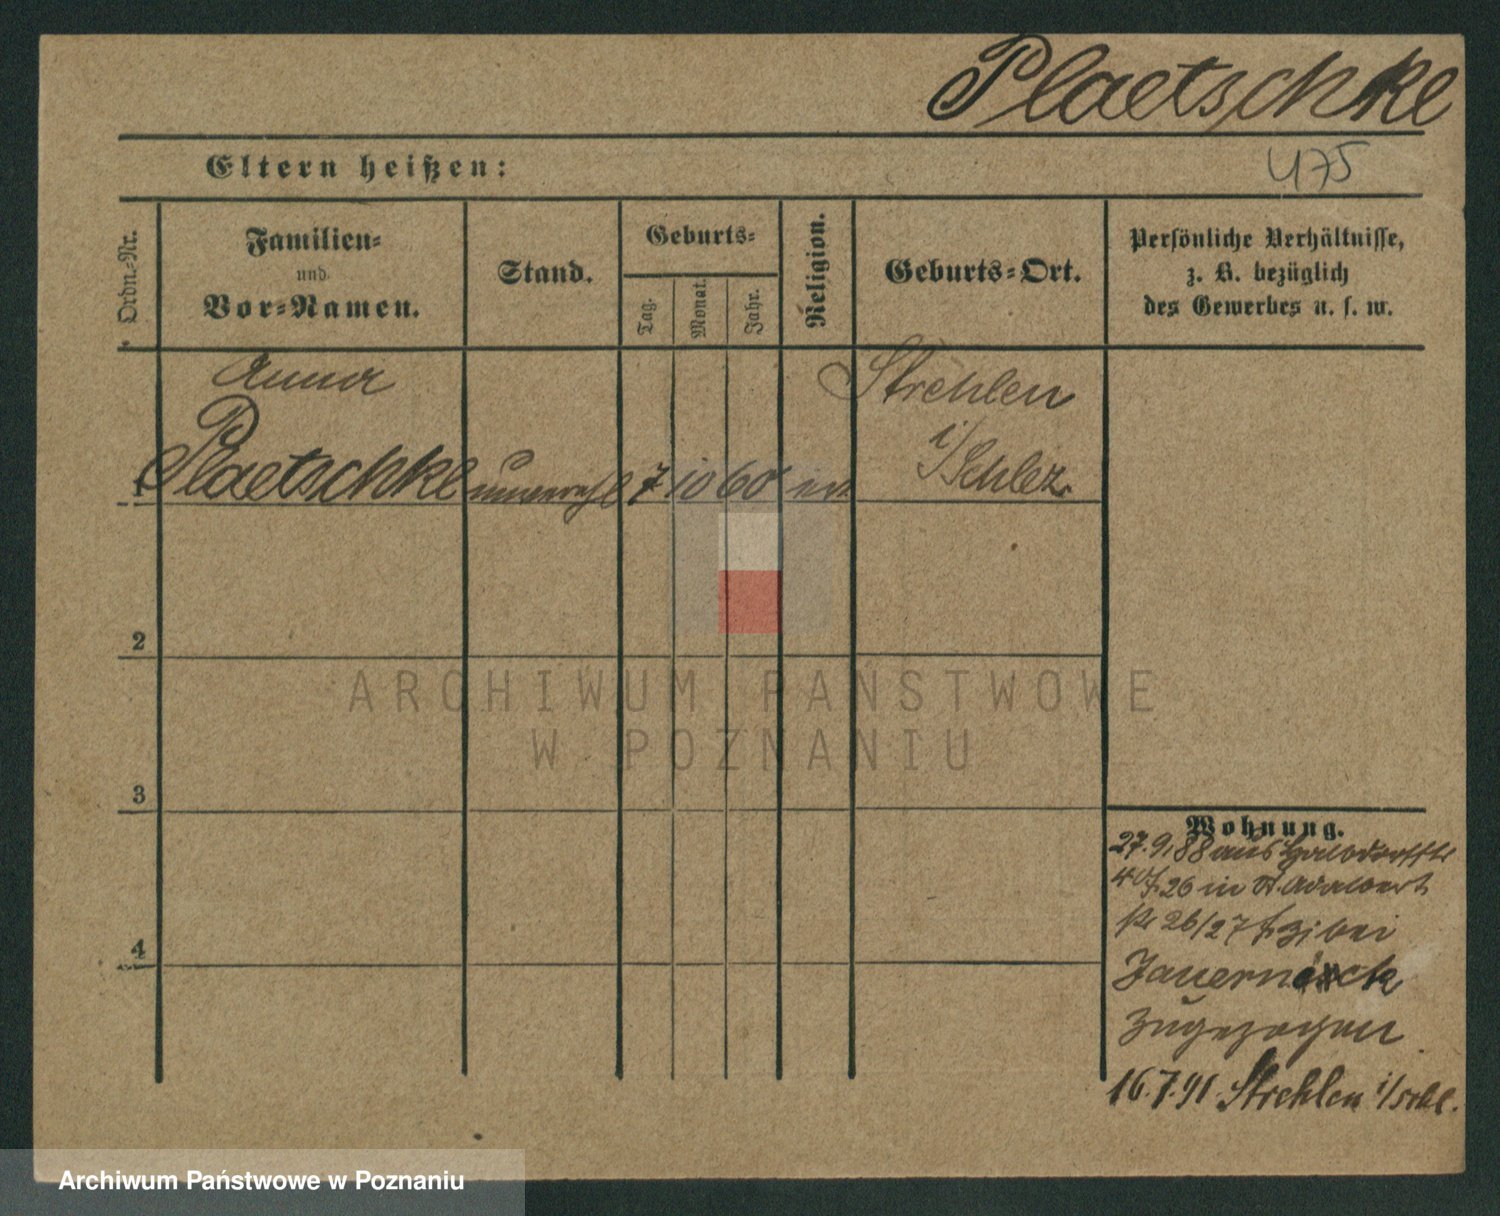 Plaetschke
Eltern heißen:
475
Ordn.-Nr.
Familien-
und
Vor-Namen.
Stand.
Geburts-
Tag.
Monat.
Jahr.
Religion.
Geburts-Ort.
Persönliche Verhältnisse,
z. B. bezüglich
des Gewerbes u. s. w.
Anna
Strehlen
i/Schles.
1 Plaetschke unverehl 7 10 60
2
ARCHIWUM PAŃSTWOWE
W POZNANIU
3
Wohnung.
27.9.88 aus Halbdorffst
26 in St. Adalbert
26/27 bei
Jauernick
zugezogen
16.7.91 Strehlen i/schl.
4
Archiwum Państwowe w Poznaniu